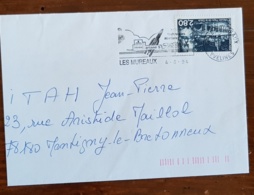 2,80
LES MUREAUX
ITAH Jean-Pierre
23, rue Aristide Maillol
78180 Montigny-le-Bretonneux